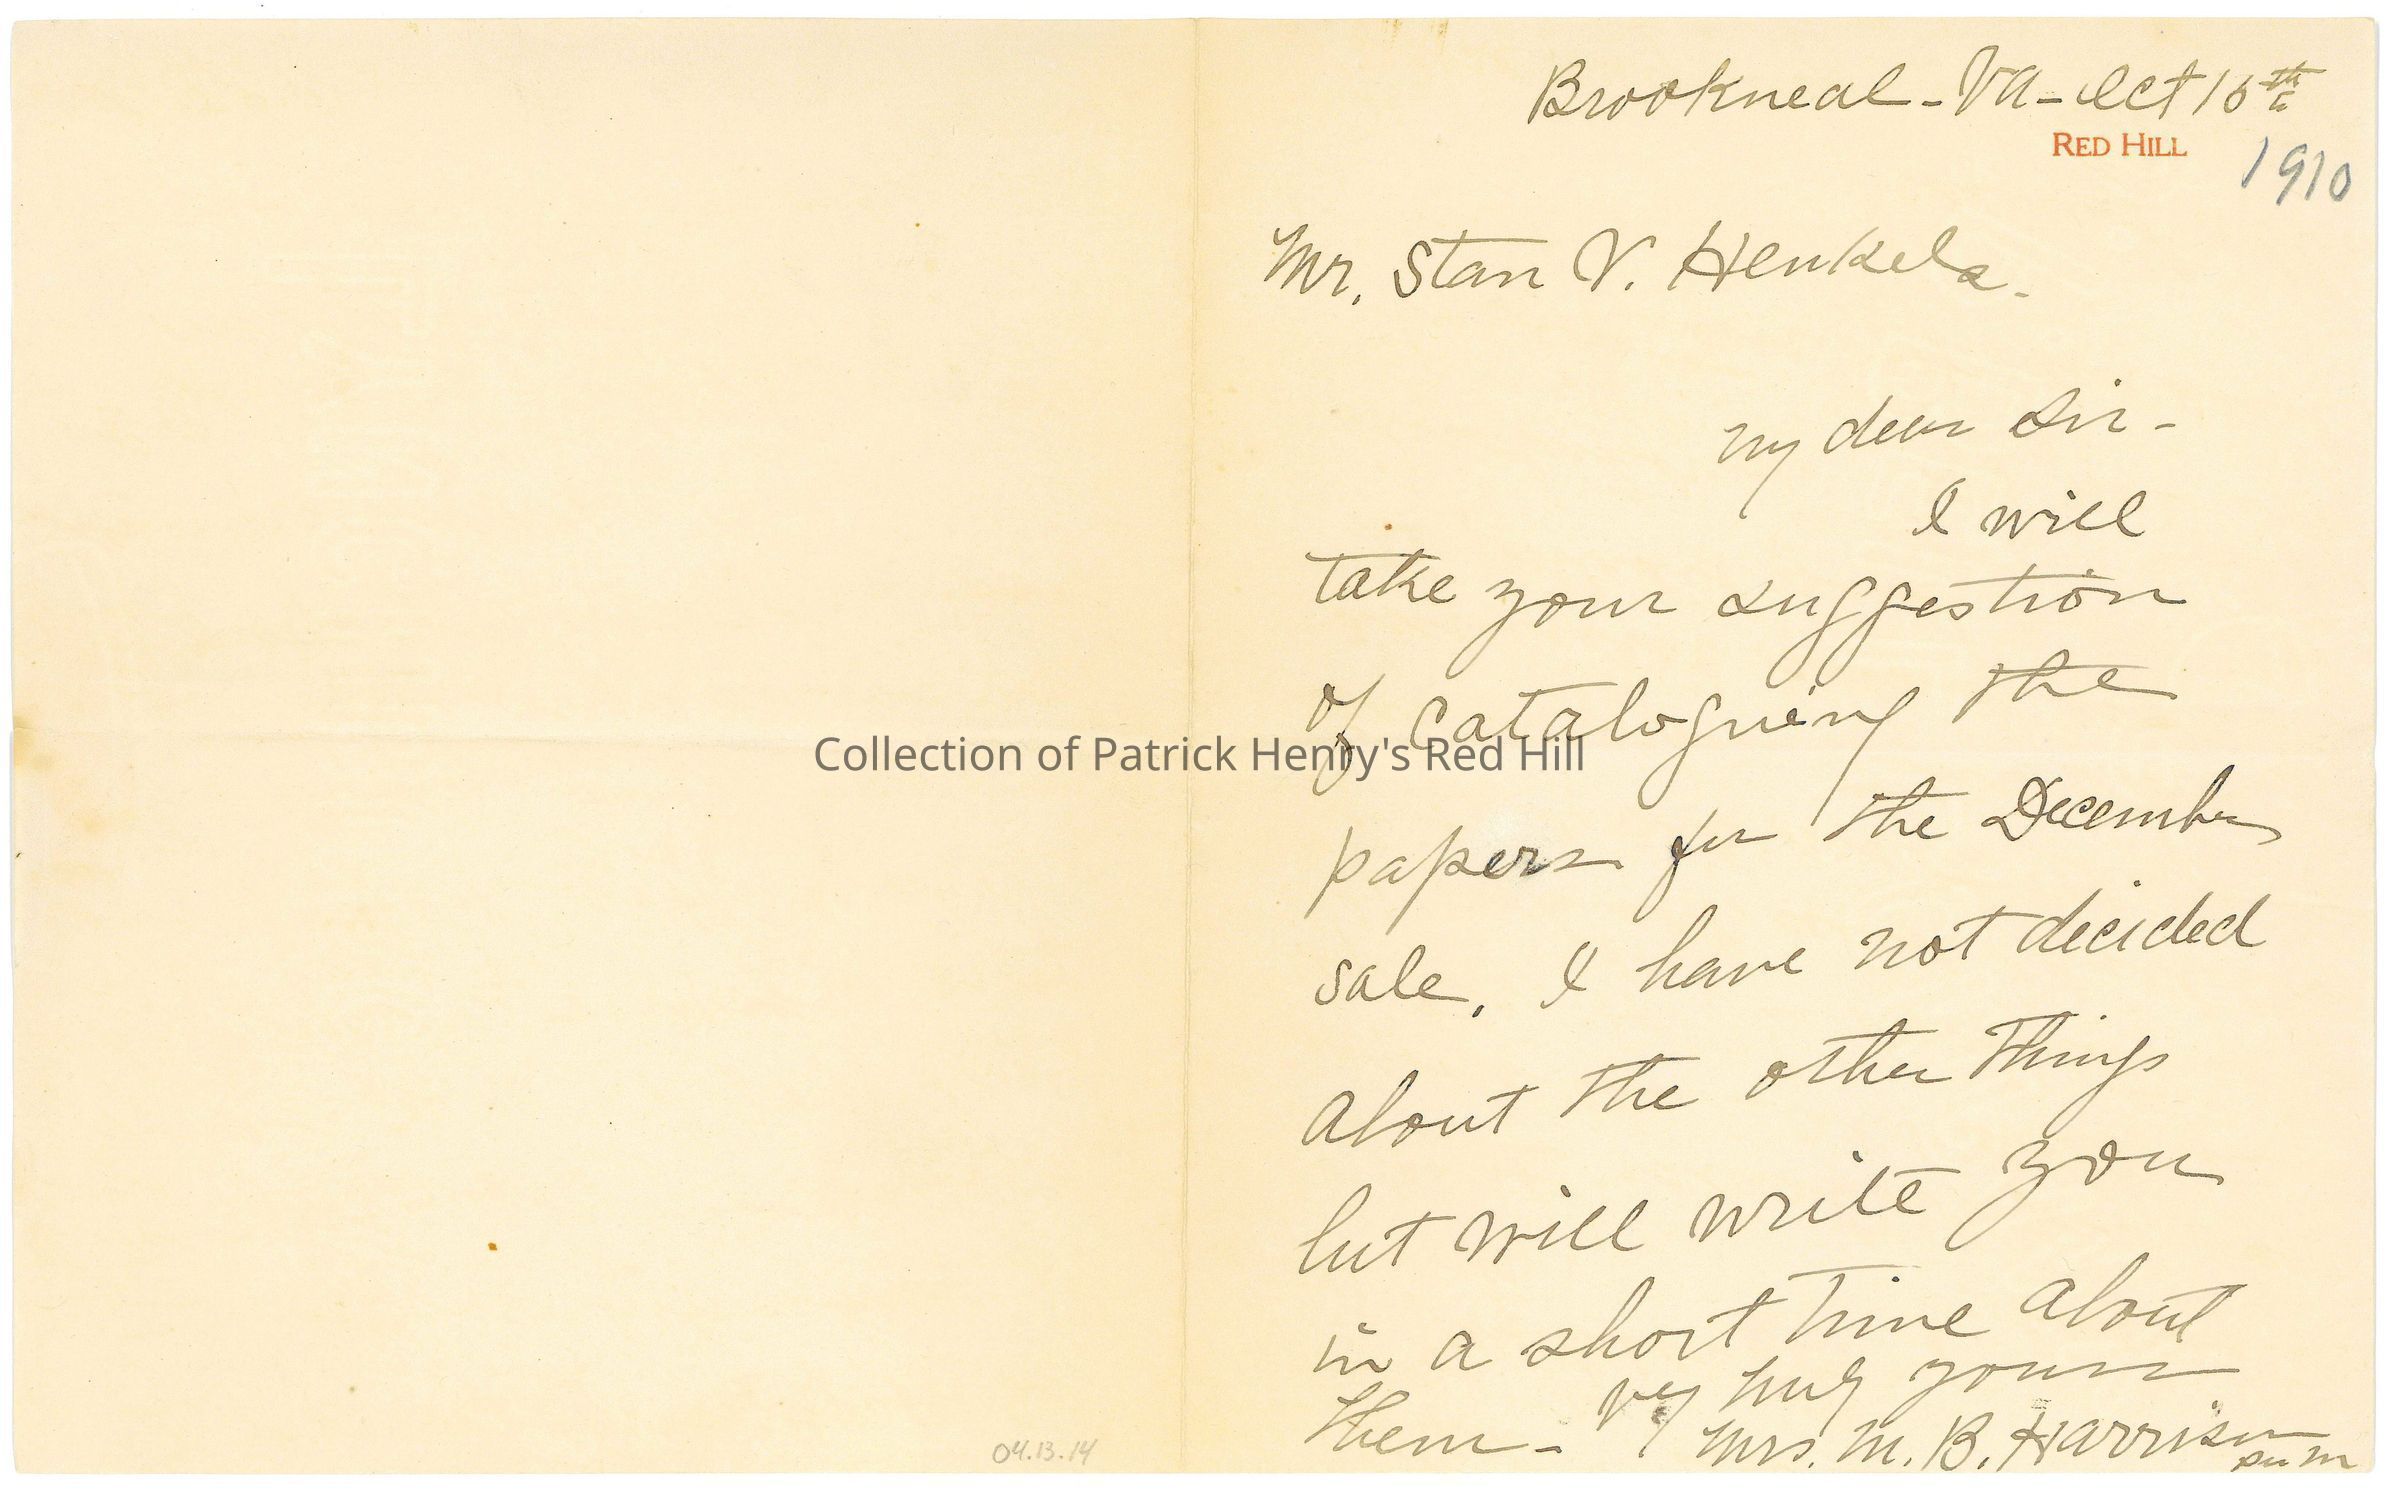 Brookneal - Va - Oct 16th
RED HILL
1910
Mr. Stan V. Henkels.
My dear Sir -
I will
take your suggestion
of cataloguing the
Collection of Patrick Henry's Red Hill
papers for the December
sale. I have not decided
about the other things
but will write you
in a short time about
them - Vey truly yours
Mrs. M. B. Harrison
04.13.14